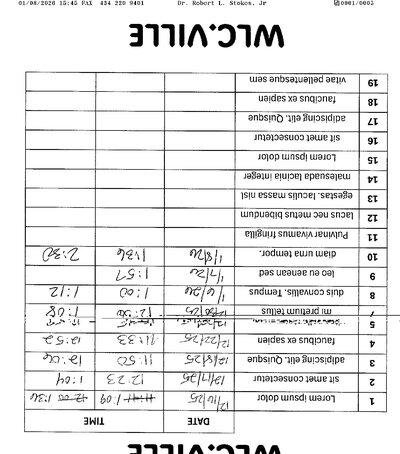 01/08/2026 15:45 FAX 434 220 9401 Dr. Robert L. Stokes, Jr 0001/0003
WLC.VILLE
DATE TIME
1 Lorem ipsum dolor 12/16/25 1:09 1:36
2 sit amet consectetur 12/17/25 12:23 1:04
3 adipiscing elit. Quisque 12/18/25 11:50 12:06
4 faucibus ex sapien 12/22/25 11:33 12:52
5
7 mi pretium tellus 12/30/25 12:30 1:08
8 duis convallis. Tempus 1/6/26 1:00 1:12
9 leo eu aenean sed 1/7/26 1:57
10 diam urna tempor. 1/8/26 1:36 2:30
11 Pulvinar vivamus fringilla
12 lacus nec metus bibendum
13 egestas. Iaculis massa nisl
14 malesuada lacinia integer
15 Lorem ipsum dolor
16 sit amet consectetur
17 adipiscing elit. Quisque
18 faucibus ex sapien
19 vitae pellentesque sem
WLC.VILLE